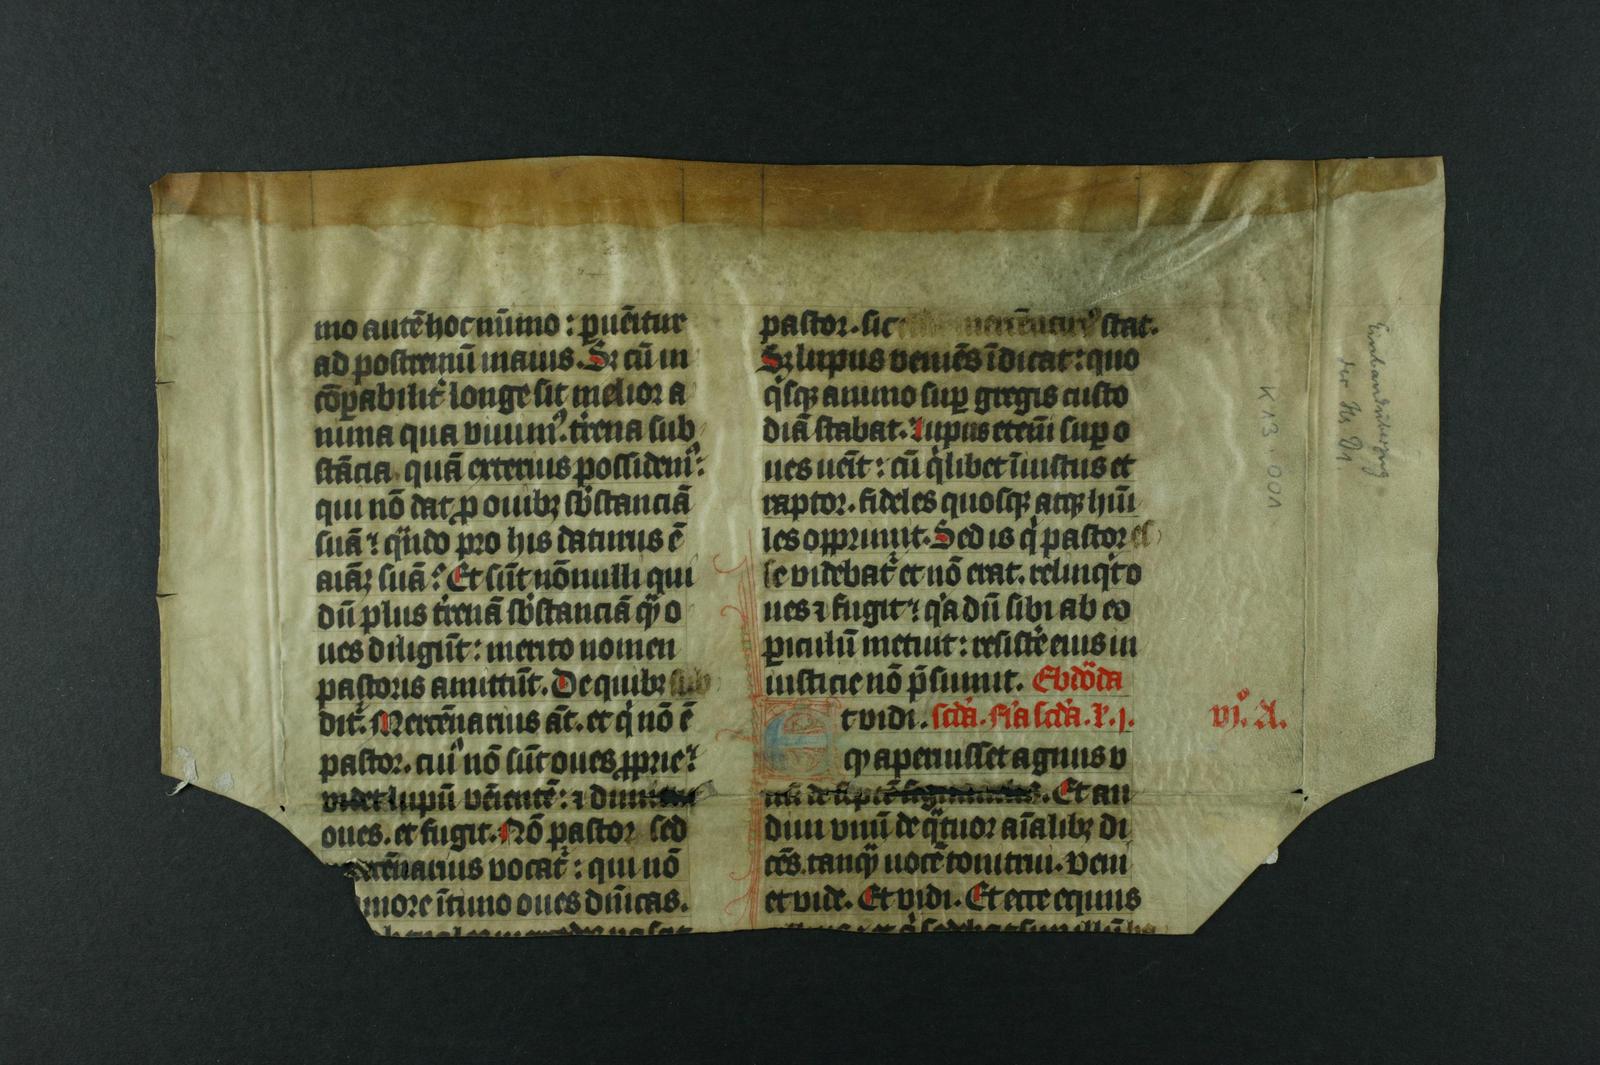 mo autē hoc nr̄imo : ꝑuēitur
ad postremū maius. Sꝫ cū in
cōꝑabilit̄ longe sit melior a
nima qua viuimꝰ. t̓rena sub
stācia quā exterius possidemꝰ:
qui nō dat ꝓ ouibꝫ sb̓stanciā
suā? qn̄do pro his daturus ē
aīaꝫ suā? Et sūt nōnulli qui
dū plus t̓renā sb̓stanciā qͣꝫ o
ues diligūt: merito nomen
pastoris amittūt. De quibꝫ sub
dit̄. Mercēnarius āt. et qͥ nō ē
pastor. cuiꝰ nō sūt oues ꝓprie?
videt lupū vēientē: ⁊ dimittit
oues. et fugit. Nō pastor sed
mercēnarius vocat̄: qui nō
amore ītimo oues dn̄icas.
pastor. sic mercēnariꝰ stat.
Sꝫ lupus veniēs īdicat: quo
qͥsqꝫ animo suꝑ gregis custo
diā stabat. Lupus etem̄ suꝑ o
ues ueīt: cū qͥlibet īiustus et
raptor. fideles quosqꝫ atqꝫ hūi
les opprimit. Sed is qͥ pastor eē
se videbat̄ et nō erat. relinqͥt o
ues ⁊ fugit? qͥa dū sibi ab eo
ꝑiculū metuit: resistē eius in
iusticie nō p̄sumit. Ebdōda
Et vidi. scd̓a. fīa scd̓a. ꝶ. j.
qꝫ aperuisset agnus v
num de septē signaculis. Et au
diui vnū de qͣtuor aīalibꝫ di
cēs. tanqͣꝫ uocē tonitrui. Veni
et vide. Et vidi. Et ecce equus
vjͦ. A.
K 13. 001
Einbandüberzug
der Hs. V1.